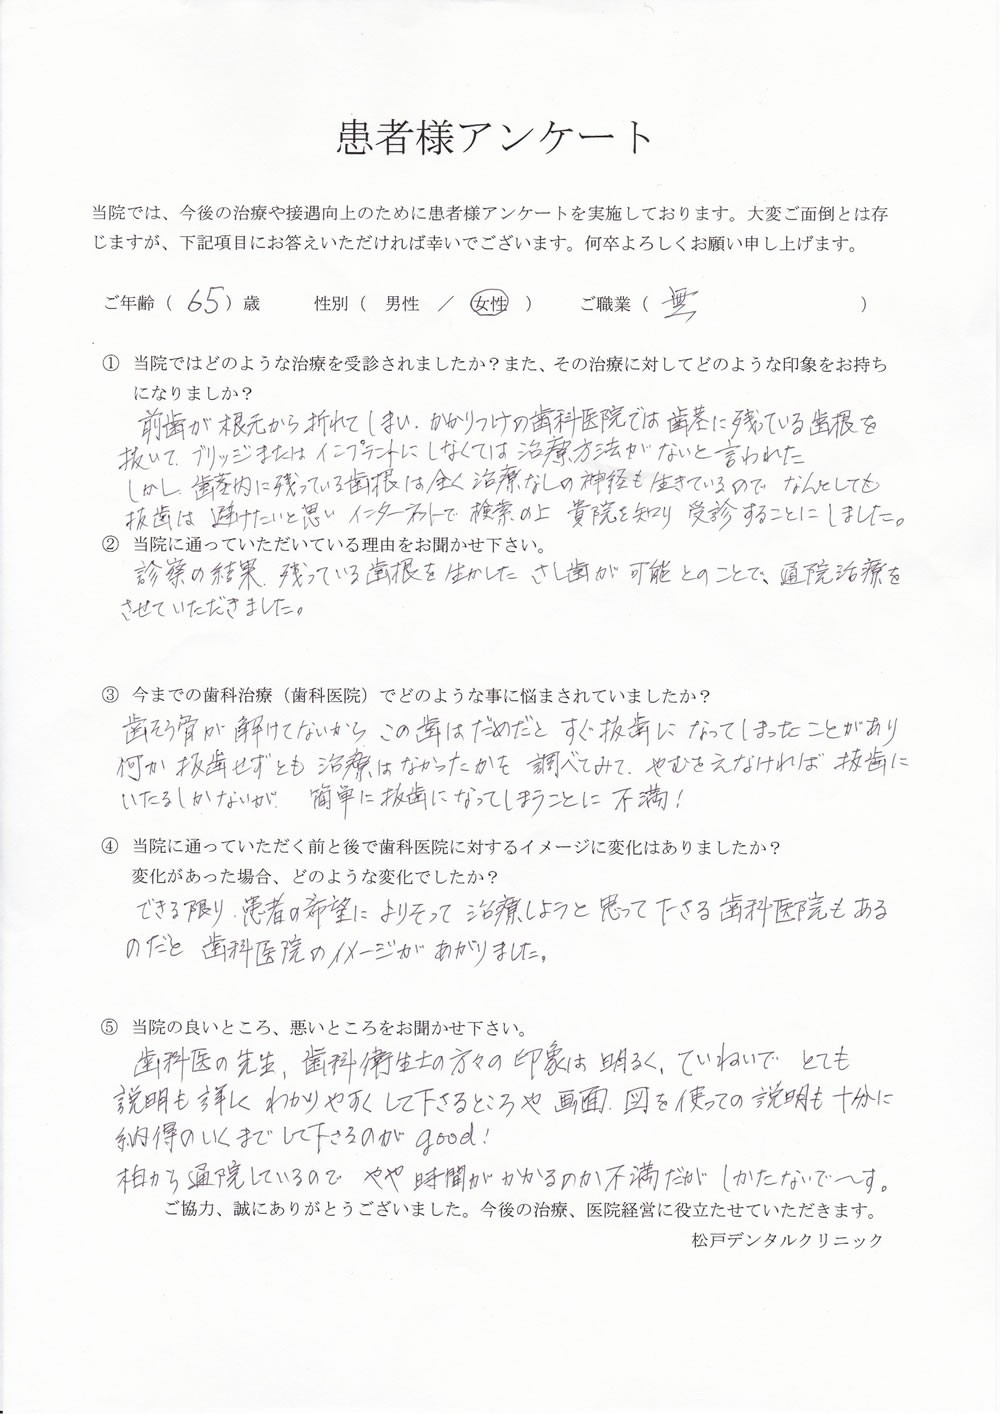 患者様アンケート
当院では、今後の治療や接遇向上のために患者様アンケートを実施しております。大変ご面倒とは存
じますが、下記項目にお答えいただければ幸いでございます。何卒よろしくお願い申し上げます。
ご年齢（ 65 ）歳 性別（ 男性 ／ 女性 ） ご職業（ 無 ）
① 当院ではどのような治療を受診されましたか？また、その治療に対してどのような印象をお持ち
になりましか？
前歯が根元から折れてしまい、かかりつけの歯科医院では歯茎に残っている歯根を
抜いて、ブリッジまたはインプラントにしなくては治療方法がないと言われた
しかし、歯茎内に残っている歯根は全く治療なしの神経も生きているので なんとしても
抜歯は避けたいと思い インターネットで検索の上 貴院を知り 受診することにしました。
② 当院に通っていただいている理由をお聞かせ下さい。
診察の結果、残っている歯根を生かした さし歯が可能とのことで、通院治療を
させていただきました。
③ 今までの歯科治療（歯科医院）でどのような事に悩まされていましたか？
歯そう骨が解けてないから この歯はだめだと すぐ抜歯になってしまったことがあり
何か抜歯せずとも治療はなかったかを調べてみて、やむをえなければ抜歯に
いたるしかないが、簡単に抜歯になってしまうことに不満！
④ 当院に通っていただく前と後で歯科医院に対するイメージに変化はありましたか？
変化があった場合、どのような変化でしたか？
できる限り、患者の希望によりそって治療しようと思って下さる歯科医院もある
のだと 歯科医院のイメージがあがりました。
⑤ 当院の良いところ、悪いところをお聞かせ下さい。
歯科医の先生、歯科衛生士の方々の印象は明るく、ていねいで とても
説明も詳しく わかりやすくして下さるところや画面、図を使っての説明も十分に
納得のいくまでして下さるのがgood！
柏から通院しているので やや時間がかかるのが不満だが しかたないで～す。
ご協力、誠にありがとうございました。今後の治療、医院経営に役立たせていただきます。
松戸デンタルクリニック